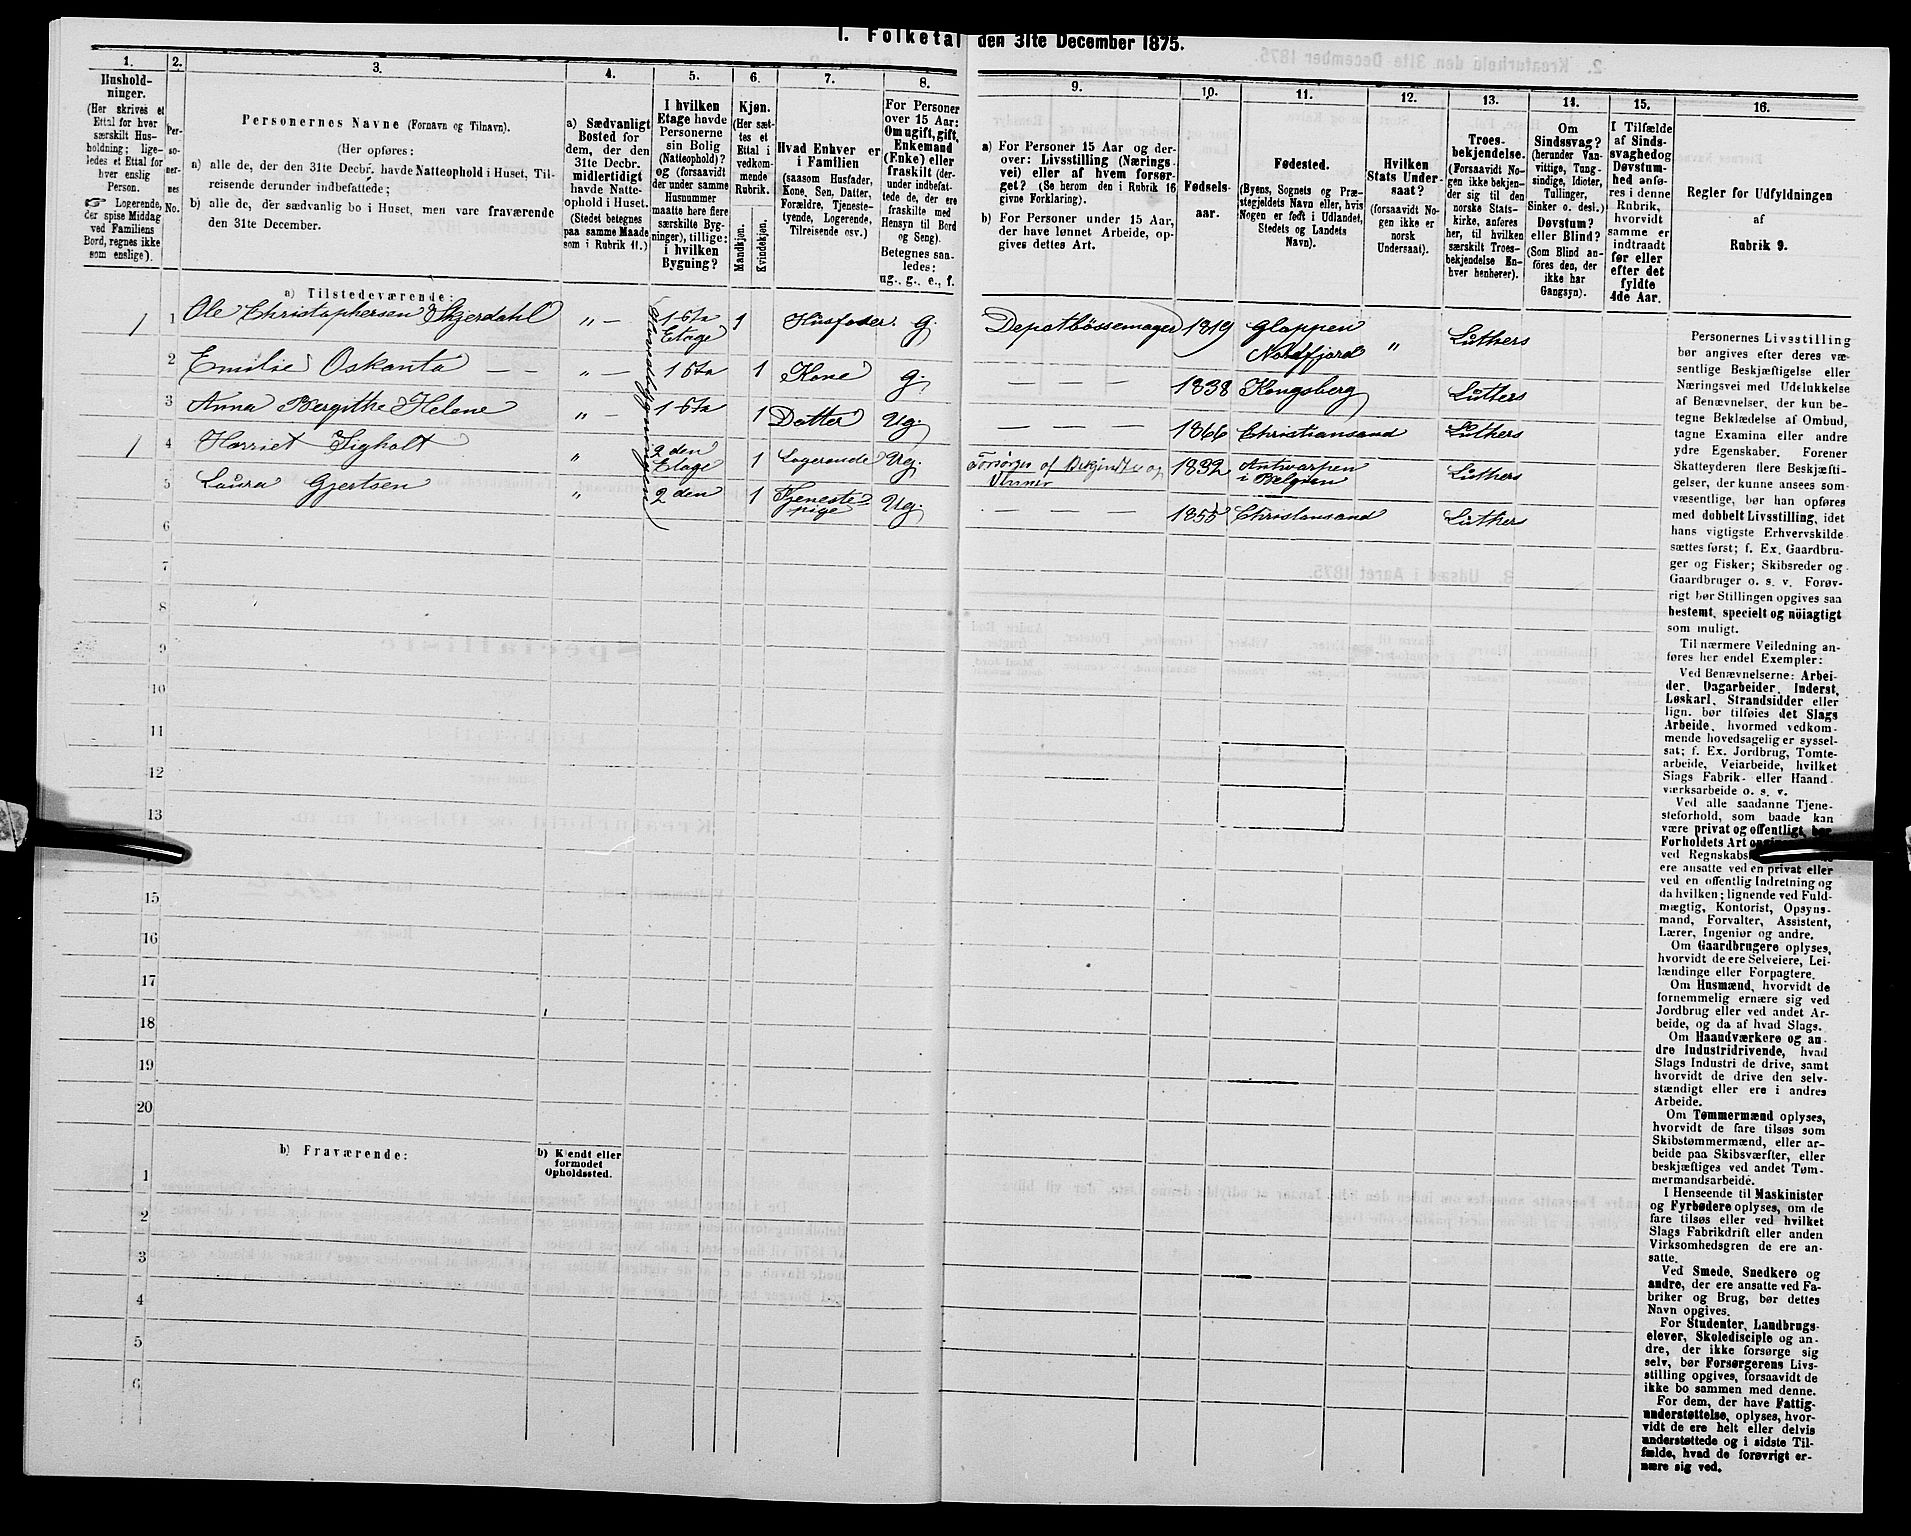 I. Folketal den 31te December 1875.
1.
Hushold-
ninger.
(Her skrives et
Ettal for hver
særskilt Hus-
holdning; lige-
ledes et Ettal for
hver enslig
Person.
☞ Logerende,
der spise Middag
ved Familiens
Bord, regnes ikke
som enslige).
2.
Per-
so-
ner-
nes
No.
3.
Personernes Navne (Fornavn og Tilnavn).
(Her opføres:
a) alle de, der den 31te Decbr. havde Natteophold i Huset, Til-
reisende derunder indbefattede;
b) alle de, der sædvanlig bo i Huset, men vare fraværende
den 31te December.
4.
a) Sædvanligt
Bosted for
dem, der den
31te Decbr.
midlertidigt
havde Natte-
ophold i Huset.
(Stedet betegnes
paa samme Maade
som i Rubrik 11.)
5.
I hvilken
Etage havde
Personerne
sin Bolig
(Natteophold)?
og (forsaavidt
der under samme
Husnummer
maatte høre flere
særskilte Byg-
ninger), tillige:
i hvilken
Bygning?
6.
Kjøn.
(Her sæt-
tes et
Ettal i
vedkom-
mende
Rubrik.
Mandkjøn.
Kvindekjøn.
7.
Hvad Enhver er
i Familien
(saasom Husfader,
Kone, Søn, Datter,
Forældre, Tjeneste-
tyende, Logerende,
Tilreisende osv.)
8.
For Personer
over 15 Aar:
Om ugift, gift,
Enkemand
(Enke) eller
fraskilt (der-
under indbefat-
tede de, der ere
fraskilte med
Hensyn til Bord
og Seng).
Betegnes saa-
ledes:
ug., g., e., f.
9.
a) For Personer 15 Aar og der-
over: Livsstilling (Nærings-
vei) eller af hvem forsør-
get? (Se herom den i Rubrik 16
givne Forklaring).
b) For Personer under 15 Aar,
der have lønnet Arbeide, op-
gives dettes Art.
10.
Fødsels-
aar.
11.
Fødested.
(Byens, Sognets og Præ-
stegjeldets Navn eller, hvis
Nogen er født i Udlandet,
Stedets og Landets
Navn).
12.
Hvilken
Stats Under-
saat?
(forsaavidt No-
gen ikke er
norsk
Undersaat).
13.
Troes-
bekjendelse.
(Forsaavidt No-
gen ikke bekjen-
der sig til den
norske Stats-
kirke, anføres
her, til hvilken
særskilt Troes-
bekjendelse En-
hver henhører).
14.
Om
Sindssvag?
(herunder Van-
vittige, Tung-
sindige, Idioter,
Tullinger,
Sinker o. desl.)
Døvstum?
eller Blind?
(Som Blind an-
føres den, der
ikke har
Gangsyn).
15.
I Tilfælde
af Sinds-
svaghed og
Døvstum-
hed anfø-
res i denne
Rubrik,
hvorvidt
samme er
indtraadt
før eller
efter det
fyldte
4de Aar.
16.
Regler for Udfyldningen
af
Rubrik 9.
a) Tilstedeværende:
1 1 Ole Christophersen Skjerdahl „ — 1ste Etage 1 Husfader G. Depotbøssemager 1819 Gloppen Nordfjord „ Luthers
Hovedbygningen
2 Emilie Oskanta — — „ — 1ste 1 Kone G. — — 1838 Kongsberg Luthers
3 Anna Bergithe Helene „ — 1ste 1 Datter Ug. — — 1866 Christiansand Luthers
1 4 Harriet Sigholt „ 2den Etage 1 Logerende Ug. Forsørges af 1832 Antwarpen i Belgien Luthers
5 Laura Gjertsen „ 2den 1 Tjeneste pige Ug. — — 1855 Christansand Luthers
6
7
8
9
10
11
12
13
15
16
17
18
19
20
b) Fraværende:
b) Kjendt eller
formodet
Opholdssted.
1
2
3
4
5
6
Personernes Livsstilling
bør angives efter deres væ-
sentlige Beskjæftigelse eller
Næringsvei med Udelukkelse
af Benævnelser, der kun be-
tegne Beklædelse af Ombud,
tagne Examina eller andre
ydre Egenskaber. Forener
Skatteyderen flere Beskjæfti-
gelser, der kunne ansees som
væsentlige, bør han opføres
med dobbelt Livsstilling, idet
hans vigtigste Erhvervskilde
sættes først; f. Ex. Gaardbru-
ger og Fisker; Skibsreder og
Gaardbruger o. s. v. Forøv-
rigt bør Stillingen opgives saa
bestemt, specielt og nöiagtigt
som muligt.
Til nærmere Veiledning an-
føres her endel Exempler:
Ved Benævnelserne: Arbei-
der, Dagarbeider, Inderst,
Løskarl, Strandsidder eller
lign. bør tilføies det Slags
Arbeide, hvormed vedkom-
mende hovedsagelig er syssel-
sat; f. Ex. Jordbrug, Tomte-
arbeide, Veiarbeide, hvilket
Slags Fabrik- eller Haand-
værksarbeide o. s. v.
Ved alle saadanne Tjene-
steforhold, som baade kan
være privat og offentligt, bør
Forholdets Art
ved
ere ansatte ved en privat eller
ved en offentlig Indretning og
da hvilken; lignende ved Fuld-
mægtig, Kontorist, Opsyns-
mand, Forvalter, Assistent,
Lærer, Ingeniør og andre.
Om Gaardbrugere oplyses,
hvorvidt de ere Selveiere, Lei-
lændinge eller Forpagtere.
Om Husmænd, hvorvidt de
fornemmelig ernære sig ved
Jordbrug eller ved andet Ar-
beide, og da af hvad Slags.
Om Haandværkere og an-
dre Industridrivende, hvad
Slags Industri de drive, samt
hvorvidt de drive den selv-
stændigt eller ere i andres
Arbeide.
Om Tømmermænd oplyses,
hvorvidt de fare tilsøs som
Skibstømmermænd, eller ar-
beide paa Skibsværfter, eller
beskjæftiges ved andet Tøm-
mermandsarbeide.
I Henseende til Maskinister
og Fyrbødere oplyses, om de
fare tilsøs eller ved hvilket
Slags Fabrikdrift eller anden
Virksomhedsgren de ere an-
satte.
Ved Smede, Snedkere og
andre, der ere ansatte ved Fa-
briker og Brug, bør dettes
Navn opgives.
For Studenter, Landbrugs-
elever, Skoledisciple og an-
dre, der ikke forsørge sig
selv, bør Forsørgerens Livs-
stilling opgives, forsaavidt de
ikke bo sammen med denne.
For dem, der have Fattig-
understøttelse, oplyses, hvor-
vidt de ere helt eller delvis
understøttede og i sidste Til-
fælde, hvad de forøvrigt er-
nære sig ved.